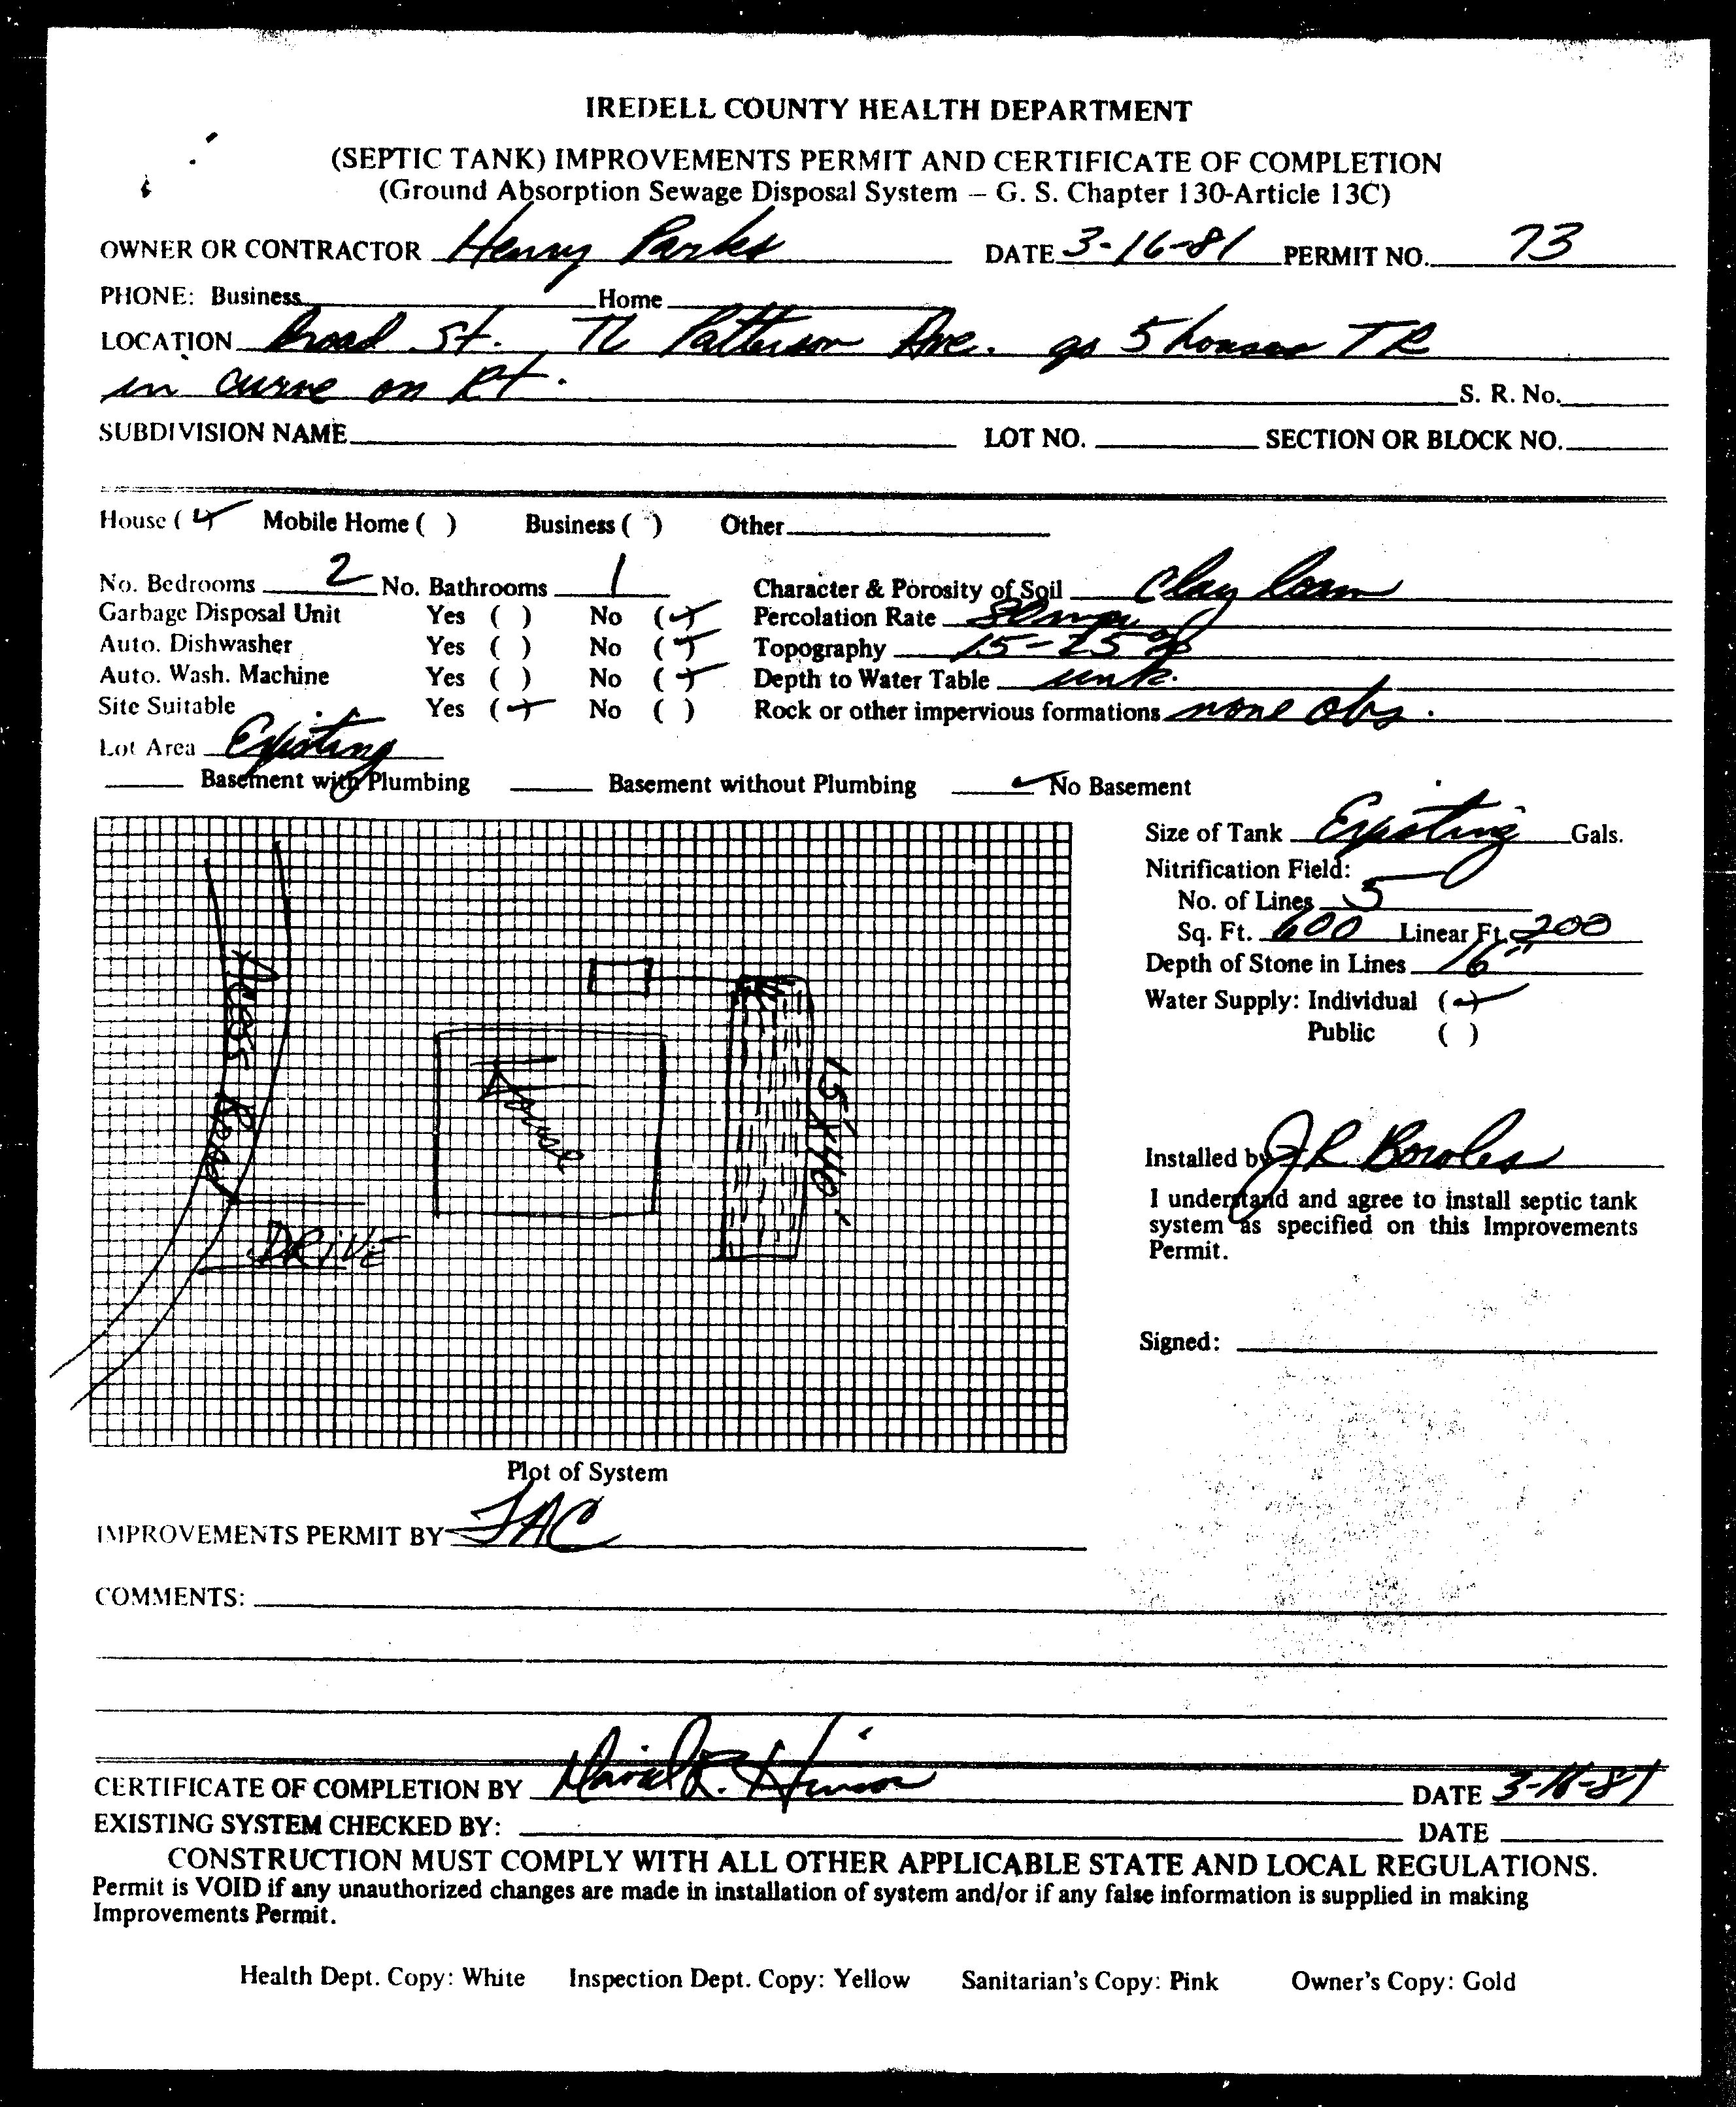 IREDELL COUNTY HEALTH DEPARTMENT
(SEPTIC TANK) IMPROVEMENTS PERMIT AND CERTIFICATE OF COMPLETION
(Ground Absorption Sewage Disposal System — G. S. Chapter 130-Article 13C)
OWNER OR CONTRACTOR Henry Parks DATE 3-16-81 PERMIT NO. 73
PHONE: Business Home
LOCATION Broad St. TL Patterson Ave. go 5 houses TR
in curve on Rt. S. R. No.
SUBDIVISION NAME LOT NO. SECTION OR BLOCK NO.
House (✓) Mobile Home ( ) Business ( ) Other
No. Bedrooms 2 No. Bathrooms 1 Character & Porosity of Soil Clay loam
Garbage Disposal Unit Yes ( ) No (✓) Percolation Rate
Auto. Dishwasher Yes ( ) No (✓) Topography 15-25%
Auto. Wash. Machine Yes ( ) No (✓) Depth to Water Table unk.
Site Suitable Yes (✓) No ( ) Rock or other impervious formations none obs.
Lot Area Existing
Basement with Plumbing Basement without Plumbing ✓ No Basement
Size of Tank Existing Gals.
Nitrification Field:
No. of Lines 5
Sq. Ft. 600 Linear Ft. 200
Depth of Stone in Lines 16"
Water Supply: Individual (✓)
Public ( )
Access Road
House
15'x40'
DRIVE
Installed by JR
I understand and agree to install septic tank
system as specified on this Improvements
Permit.
Signed:
Plot of System
IMPROVEMENTS PERMIT BY JAC
COMMENTS:
CERTIFICATE OF COMPLETION BY David R. DATE 3-16-81
EXISTING SYSTEM CHECKED BY: DATE
CONSTRUCTION MUST COMPLY WITH ALL OTHER APPLICABLE STATE AND LOCAL REGULATIONS.
Permit is VOID if any unauthorized changes are made in installation of system and/or if any false information is supplied in making
Improvements Permit.
Health Dept. Copy: White Inspection Dept. Copy: Yellow Sanitarian's Copy: Pink Owner's Copy: Gold